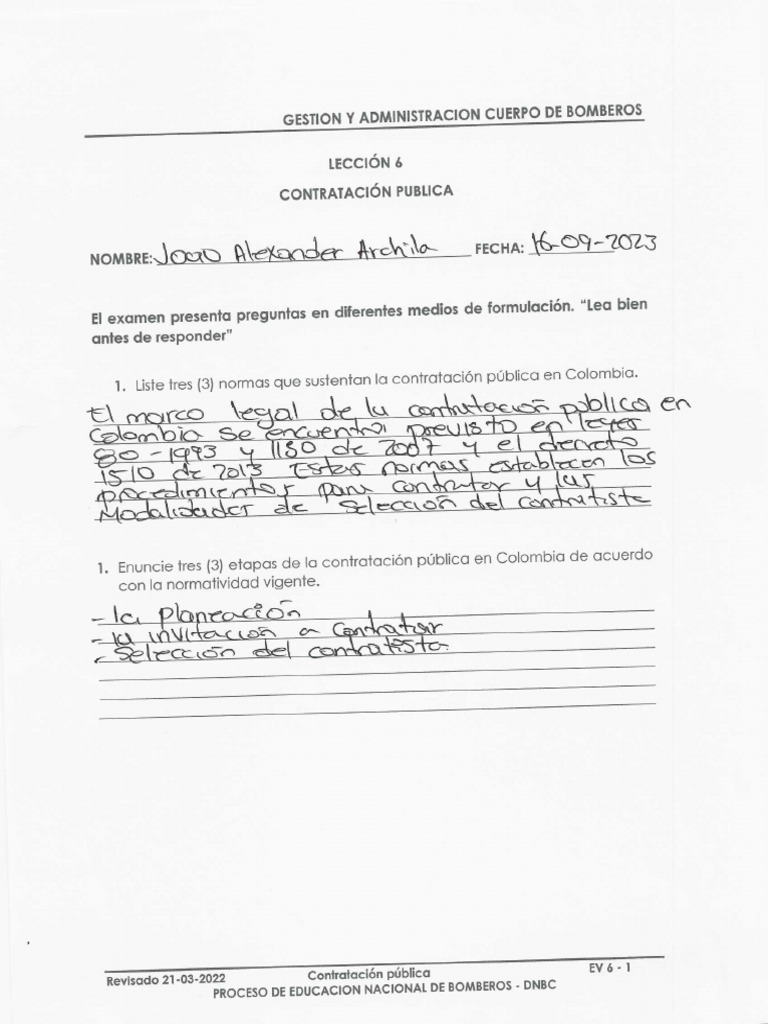 GESTION Y ADMINISTRACION CUERPO DE BOMBEROS
LECCIÓN 6
CONTRATACIÓN PUBLICA
NOMBRE: Joao Alexander Archila FECHA: 16-09-2023
El examen presenta preguntas en diferentes medios de formulación. "Lea bien
antes de responder"
1. Liste tres (3) normas que sustentan la contratación pública en Colombia.
El marco legal de la contratación pública en
Colombia se encuentra previsto en leyes
80-1993 y 1150 de 2007 y el decreto
1510 de 2013 Estas normas establecen los
procedimientos para contratar y las
Modalidades de Selección del contratista
1. Enuncie tres (3) etapas de la contratación pública en Colombia de acuerdo
con la normatividad vigente.
- la planeación
- la invitación a contratar
- Selección del contratista
Revisado 21-03-2022 Contratación pública EV 6 - 1
PROCESO DE EDUCACION NACIONAL DE BOMBEROS - DNBC